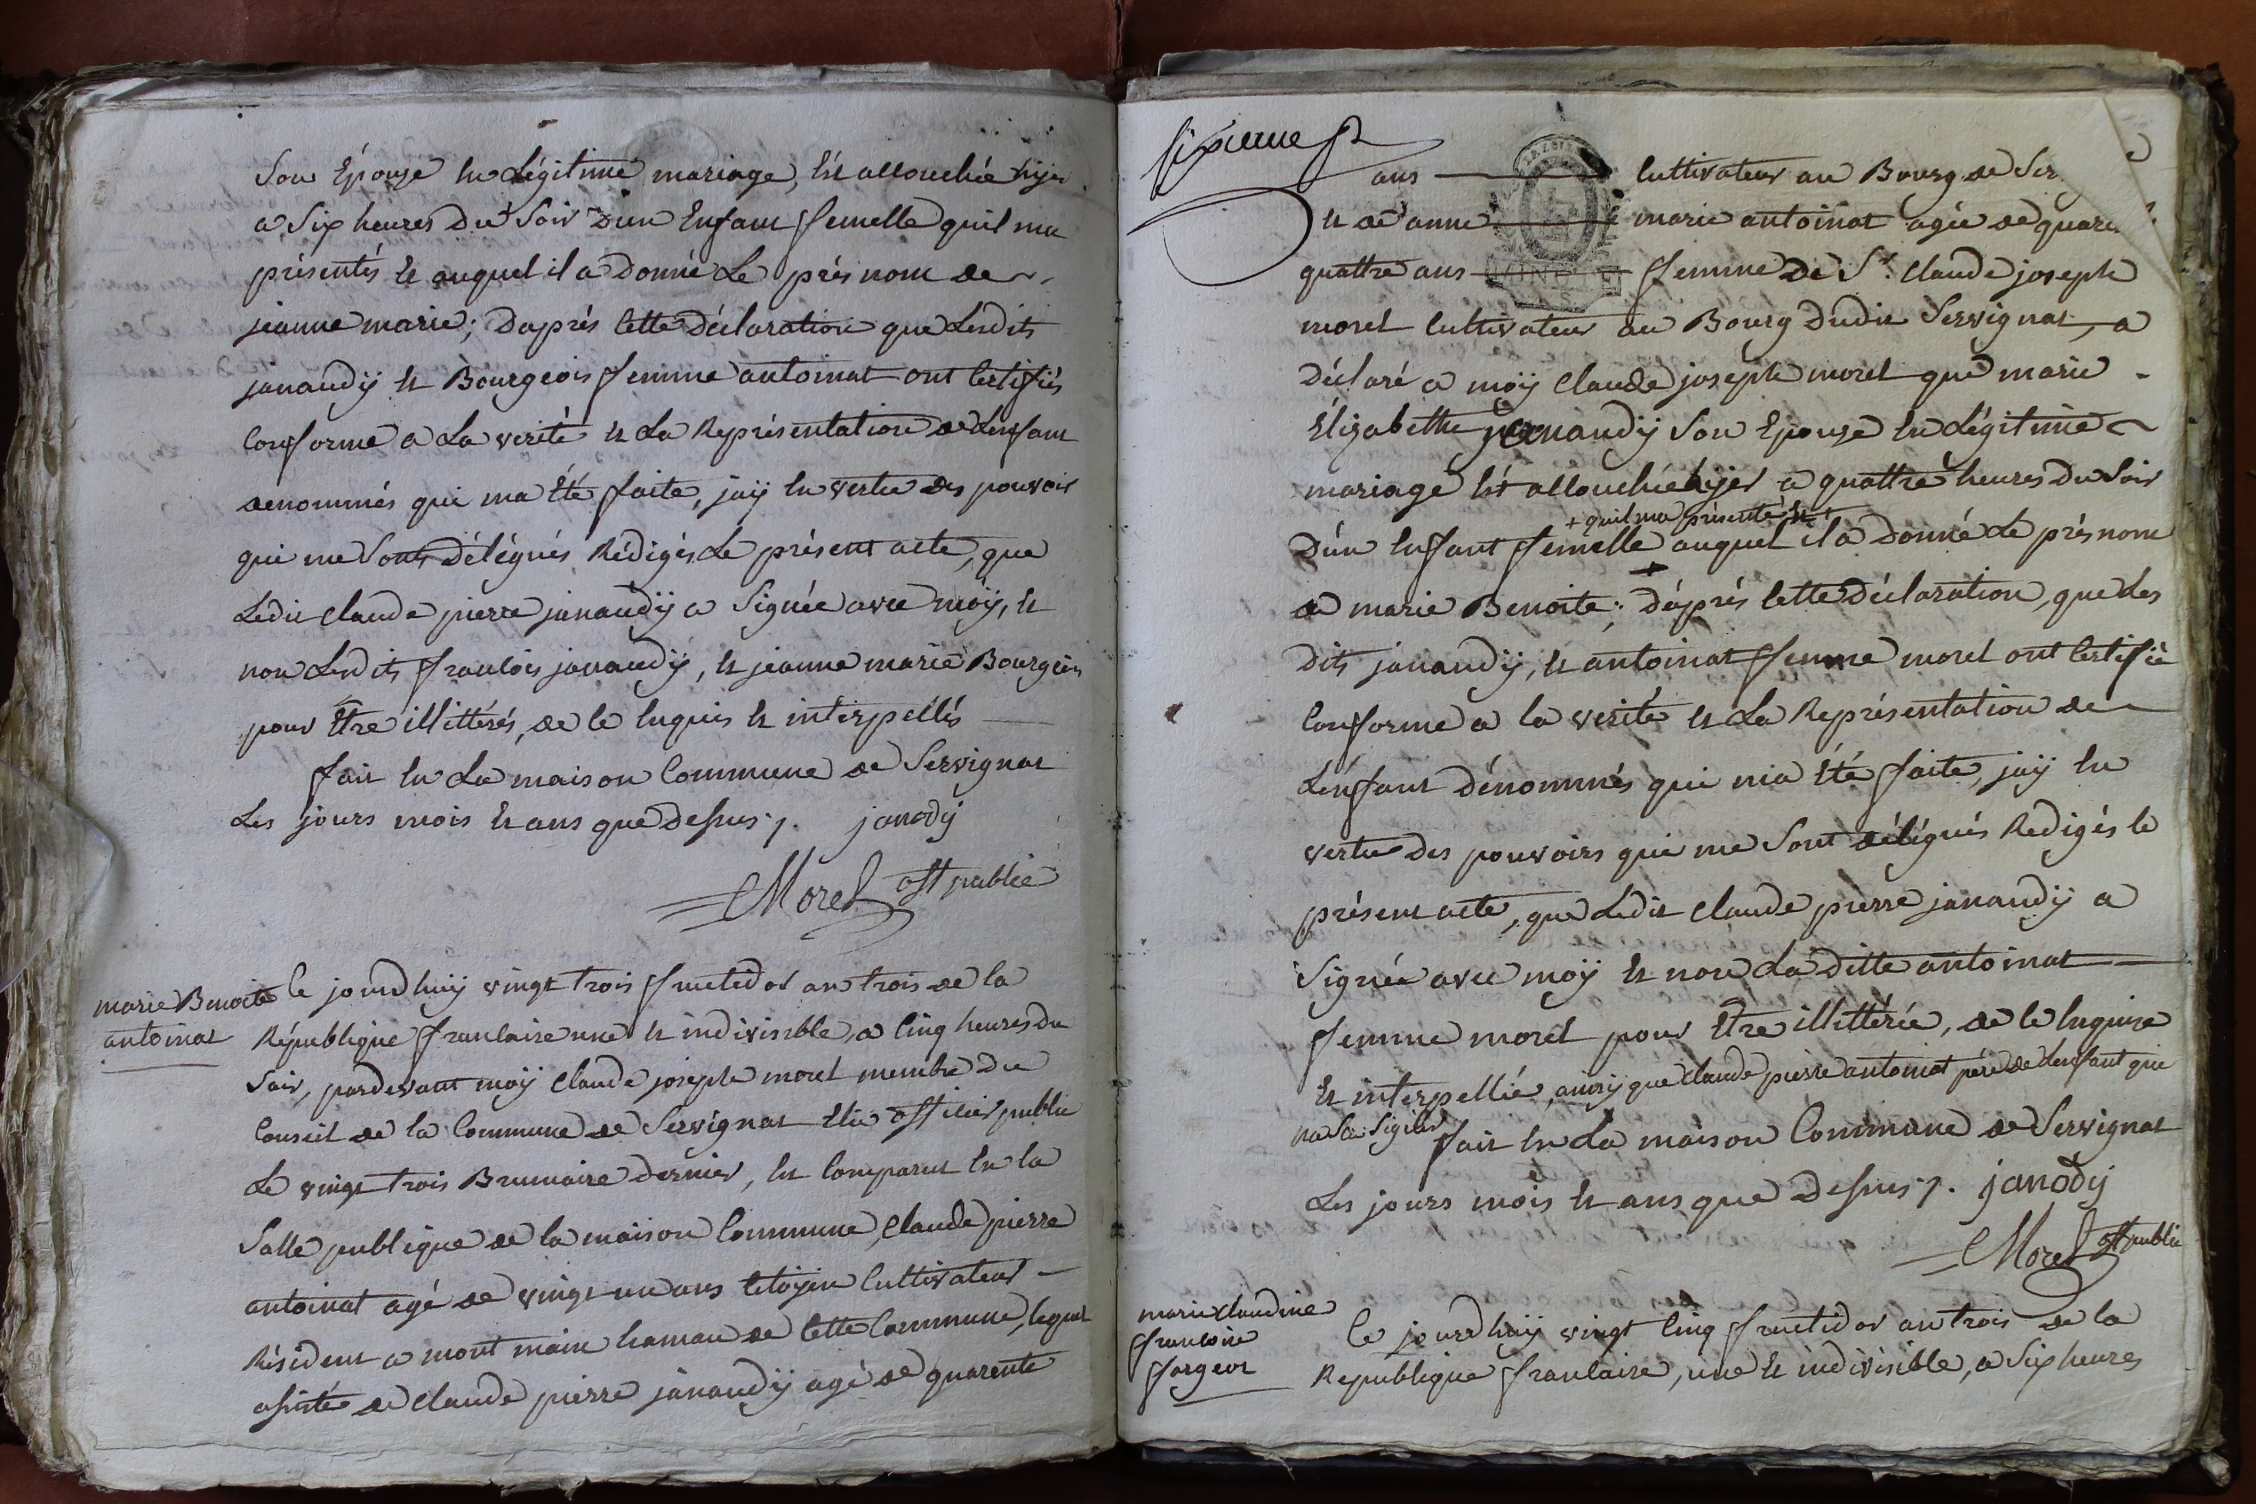 Son Épouze En Légitime mariage, Est accouchée hÿer
a Six heures Du Soir D'un Enfant femelle quil ma
présentés Et auquel il a Donné Le prés nom de
jeanne marie; Daprés Cette Déclaration que Lesdits
janaudÿ Et Bourgeois femme antoinat ont Certifiés
Conforme a La verité Et La Représentation de Lenfant
denommés qui ma Été faite, jaÿ En vertu des pouvoir
qui me Sont Délégués Rédigés Le présent acte, que
Ledit Claude pierre janaudÿ a Signée avec moÿ, Et
non Lesdits francois janaudÿ, Et jeanne marie Bourgeois
pour Être illittérés, de Ce Enquis Et interpellés
fait En La maison Commune de Servignat
Les jours mois Et ans que Dessus ./. janodÿ
Morel off public
marie Benoite
antoinat
Ce jourdhuÿ vingt trois fructidor an trois de la
République francaise une Et indivisible, a Cinq heures du
Soir, pardevant moÿ Claude joseph morel membre Du
Conseil de la Commune de Servignat Élu officier public
Le vingt trois Brumaire dernier, Est Comparut En la
Salle publique de la maison Commune, Claude pierre
antoinat agé de vingt un ans Citoÿen Cultivateur
Résident a mont main hamau de Cette Commune, lequel
assisté de Claude pierre janaudÿ agé de quarente
sixieme
ans Cultivateur au Bourg de Ser
Et de anne marie antoinat agée de quare
quattre ans femme de S.r Claude joseph
morel Cultivateur au Bourg Dudit Servignat, a
Déclaré a moÿ Claude joseph morel que marie
Élizabethe janaudÿ Son Epouze En Légitime
mariage Est accouchée hÿer a quattre heures Du Soir
+ quil ma présenté Et
D'un Enfant femelle auquel il a Donné Le prés nom
de marie Benoite; D'aprés Cette Déclaration, que Les
dits janaudÿ, Et antoinat femme morel ont Certifié
Conforme a la verité Et La Représentation de
Lénfant Dénommés qui m'a Été faite, jaÿ En
vertu Des pouvoirs qui me Sont délégués Redigés le
présent acte, que Ledit Claude pierre janaudÿ a
Signée avec moÿ Et non La ditte antoinat
femme morel pour Être illittérée, de Ce Enquise
Et interpellée, ainsÿ que Claude pierre antoinat père de Lenfant qui
na Sçu Signer
fait En La maison Commune de Servignat
Les jours mois Et ans que Dessus ./. janodÿ
Morel off public
marie Claudine
francoise
fargeot
Ce jourdhuÿ vingt Cinq fructidor an trois de la
Republique francaise, une Et indivisible, a Six heures